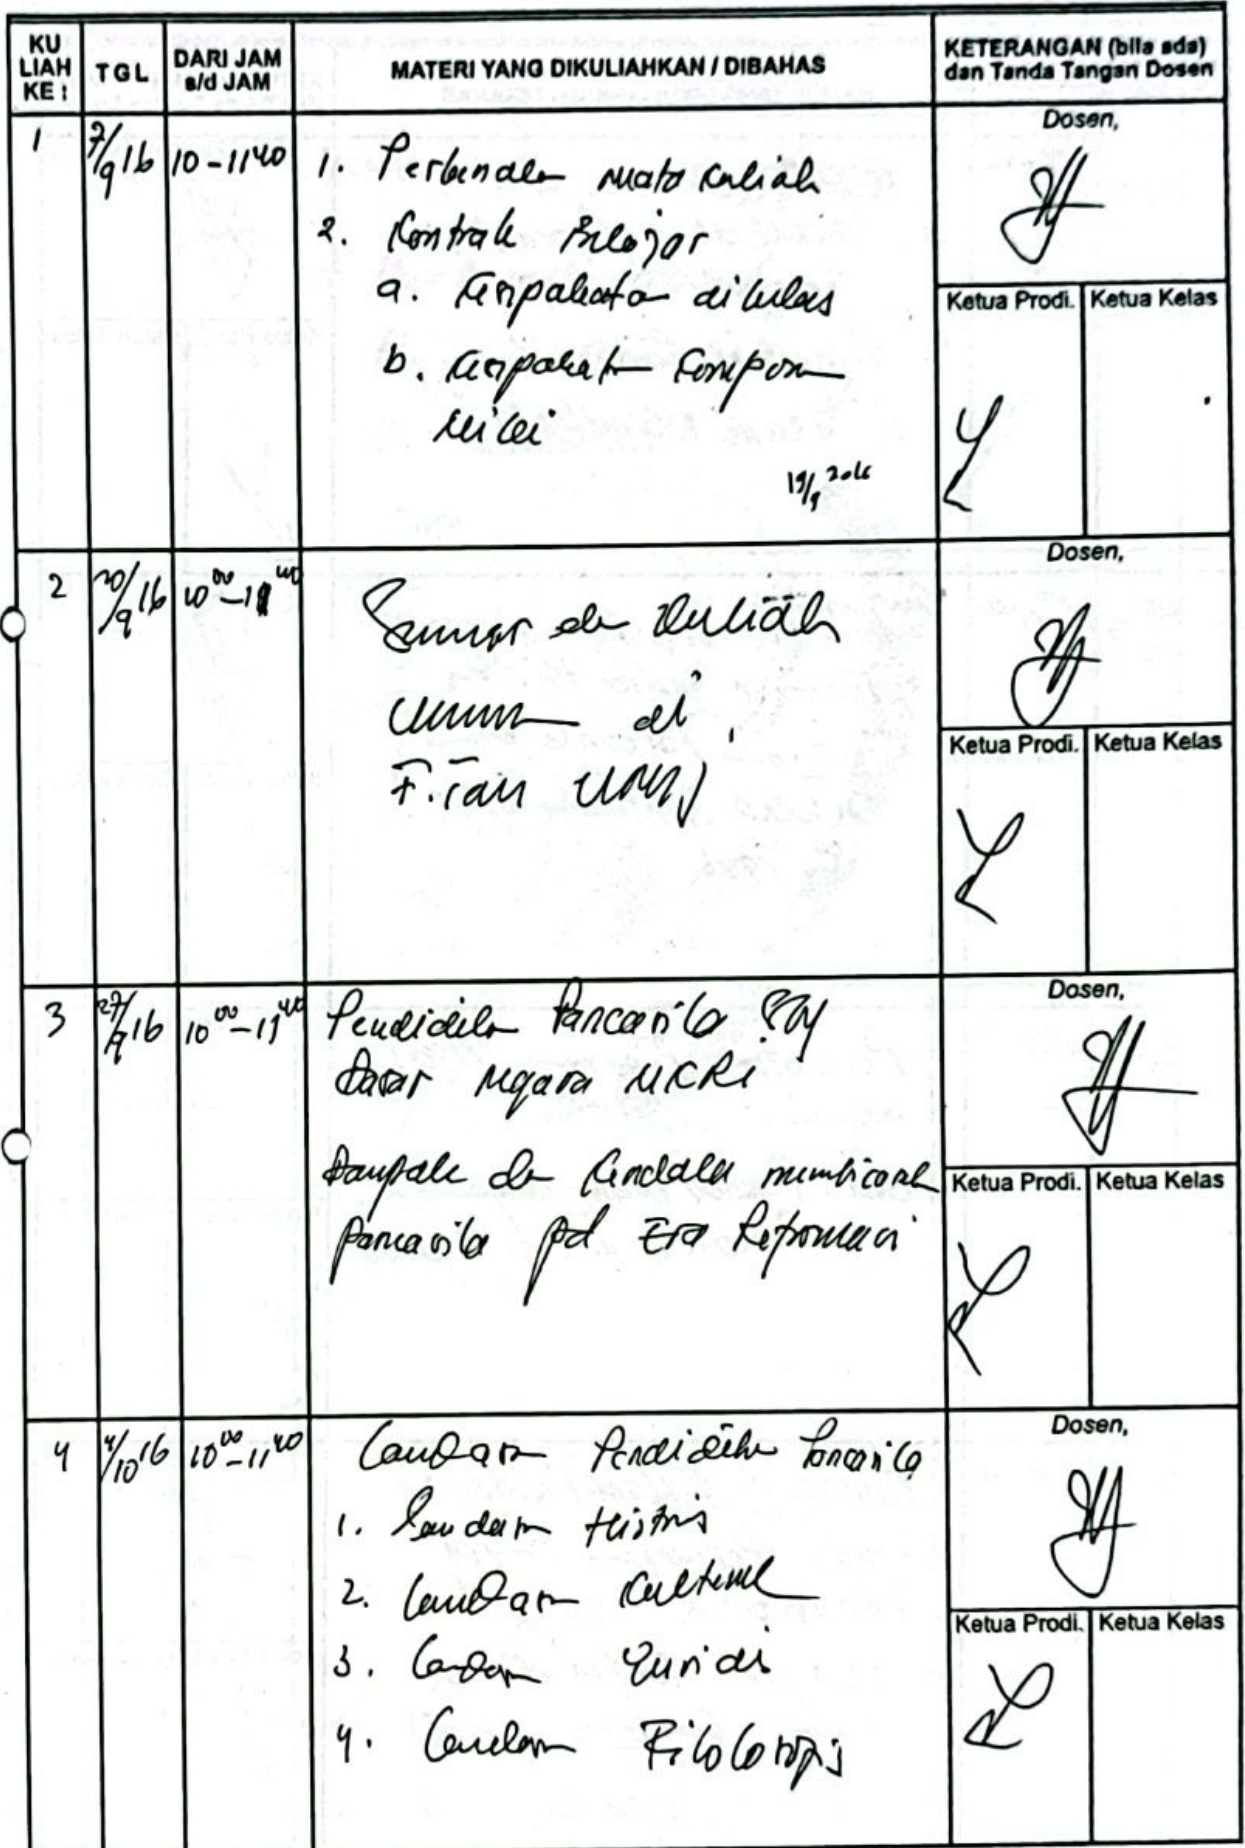 KU LIAH KE : TGL DARI JAM s/d JAM MATERI YANG DIKULIAHKAN / DIBAHAS KETERANGAN (bila ada) dan Tanda Tangan Dosen
1 7/9 16 10 - 11 40
1. mata kuliah
2. Kontrak Belajar
a. dikelas
b.
nilai
19/9 2016
Dosen,
Ketua Prodi. Ketua Kelas
2 20/9 16 10 00 - 11 40
Kuliah
di
UMJ
Dosen,
Ketua Prodi. Ketua Kelas
3 27/9 16 10 00 - 11 40 Pendidikan Pancasila sbg
Dasar Negara NKRI
Dampak dan Kendala
Pancasila pd Era Reformasi
Dosen,
Ketua Prodi. Ketua Kelas
4 4/10 16 10 00 - 11 40 Landasan Pendidikan Pancasila
1. Landasan Historis
2. Landasan Kulturul
3. Landasan Yuridis
4. Landasan Filosofis
Dosen,
Ketua Prodi. Ketua Kelas